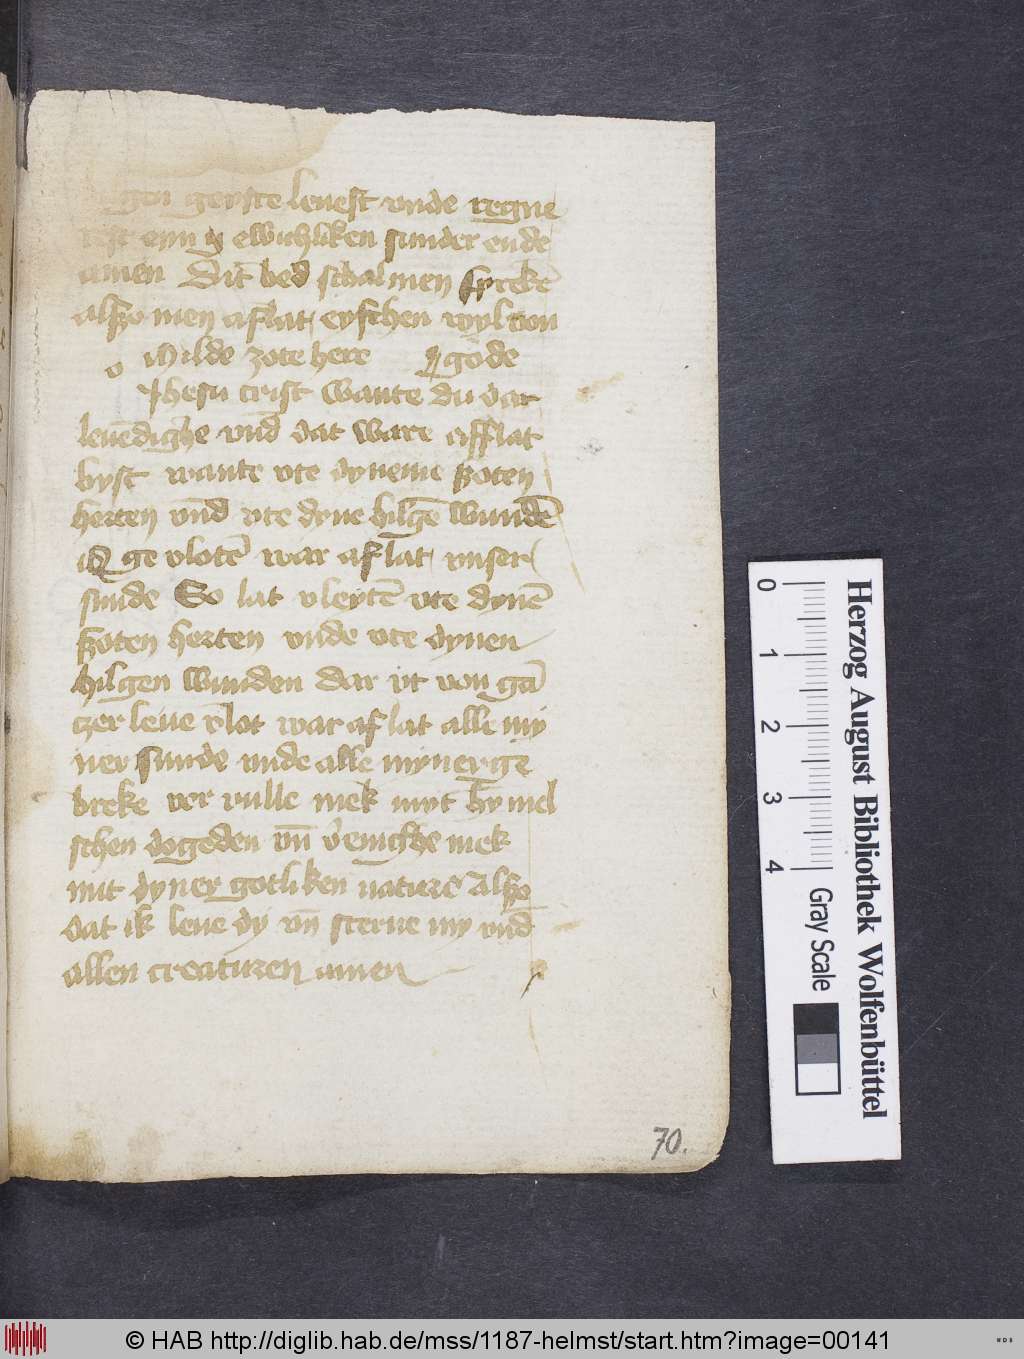 gen geyste leuest vnde regne
rest eyn g ewichliken sunder ende
amen Dit bed schal men spreken̄
alßo men aflat eyschen wyl von
O Milde zote here ¶ gode
Jhesu crist wante du dat
leuēdighe vnd dat ware afflat
byst wante vte dyneme ßoten
herten vnd vte dyne hilgē wundē
is ge vlotē war aflat vnser
sunde So lat vleytē vte dynē
ßoten herten vnde vte dynen
hilgen wunden dar vt von gā
czer leue vlot war aflat alle my
ner sunde vnde alle myner ge
breke ver vulle mek myt hymel
schen dogeden vn̄ v̄enighe mek
mit dyner gotliken naturē Alßo
dat ik leue dy vn̄ sterue my vnd
allen creaturen amen
70.
Herzog August Bibliothek Wolfenbüttel
0 1 2 3 4
Gray Scale
© HAB http://diglib.hab.de/mss/1187-helmst/start.htm?image=00141